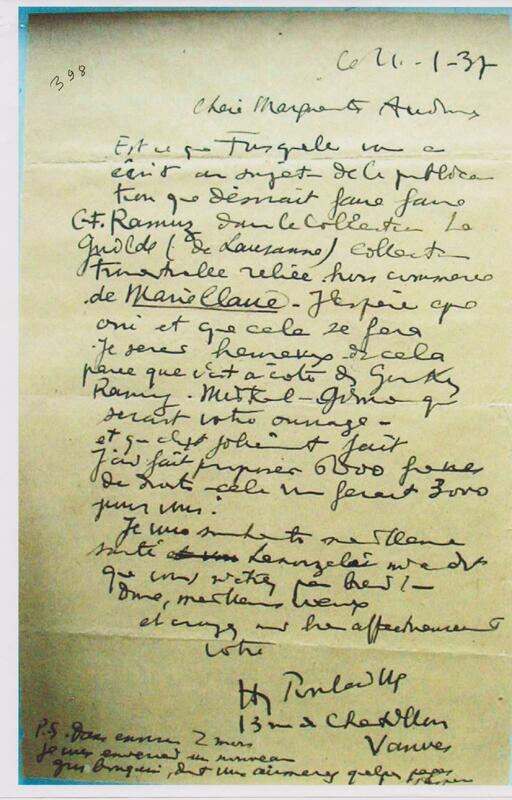 398
Le 21-1-37
Chère Marguerite Audoux
Est ce que Fasquelle vous a
écrit au sujet de la publica
tion que désirait faire faire
C.F. Ramuz dans la Collection La
Guilde (de Lausanne) collection
trimestrielle reliée hors commerce
de Marie Claire - J'espère que
oui et que cela se fera
Je serai heureux de cela
parce que c'est à côté de
Ramuz - que
serait votre ouvrage -
et que c'est joliment fait
J'ai fait proposer 6000 francs
de droits - cela vous ferait 3000
pour vous.
Je vous souhaite meilleure
santé m'a dit
que vous n'étiez pas bien! -
Donc, meilleurs vœux
et croyez moi bien affectueusement
votre
Hy Poulaille
13 rue de Chatillon
Vanves
P.S. Dans environ 2 mois
je vous enverrai un nouveau
gros bouquin, dont vous aimerez quelques pages
j'espère